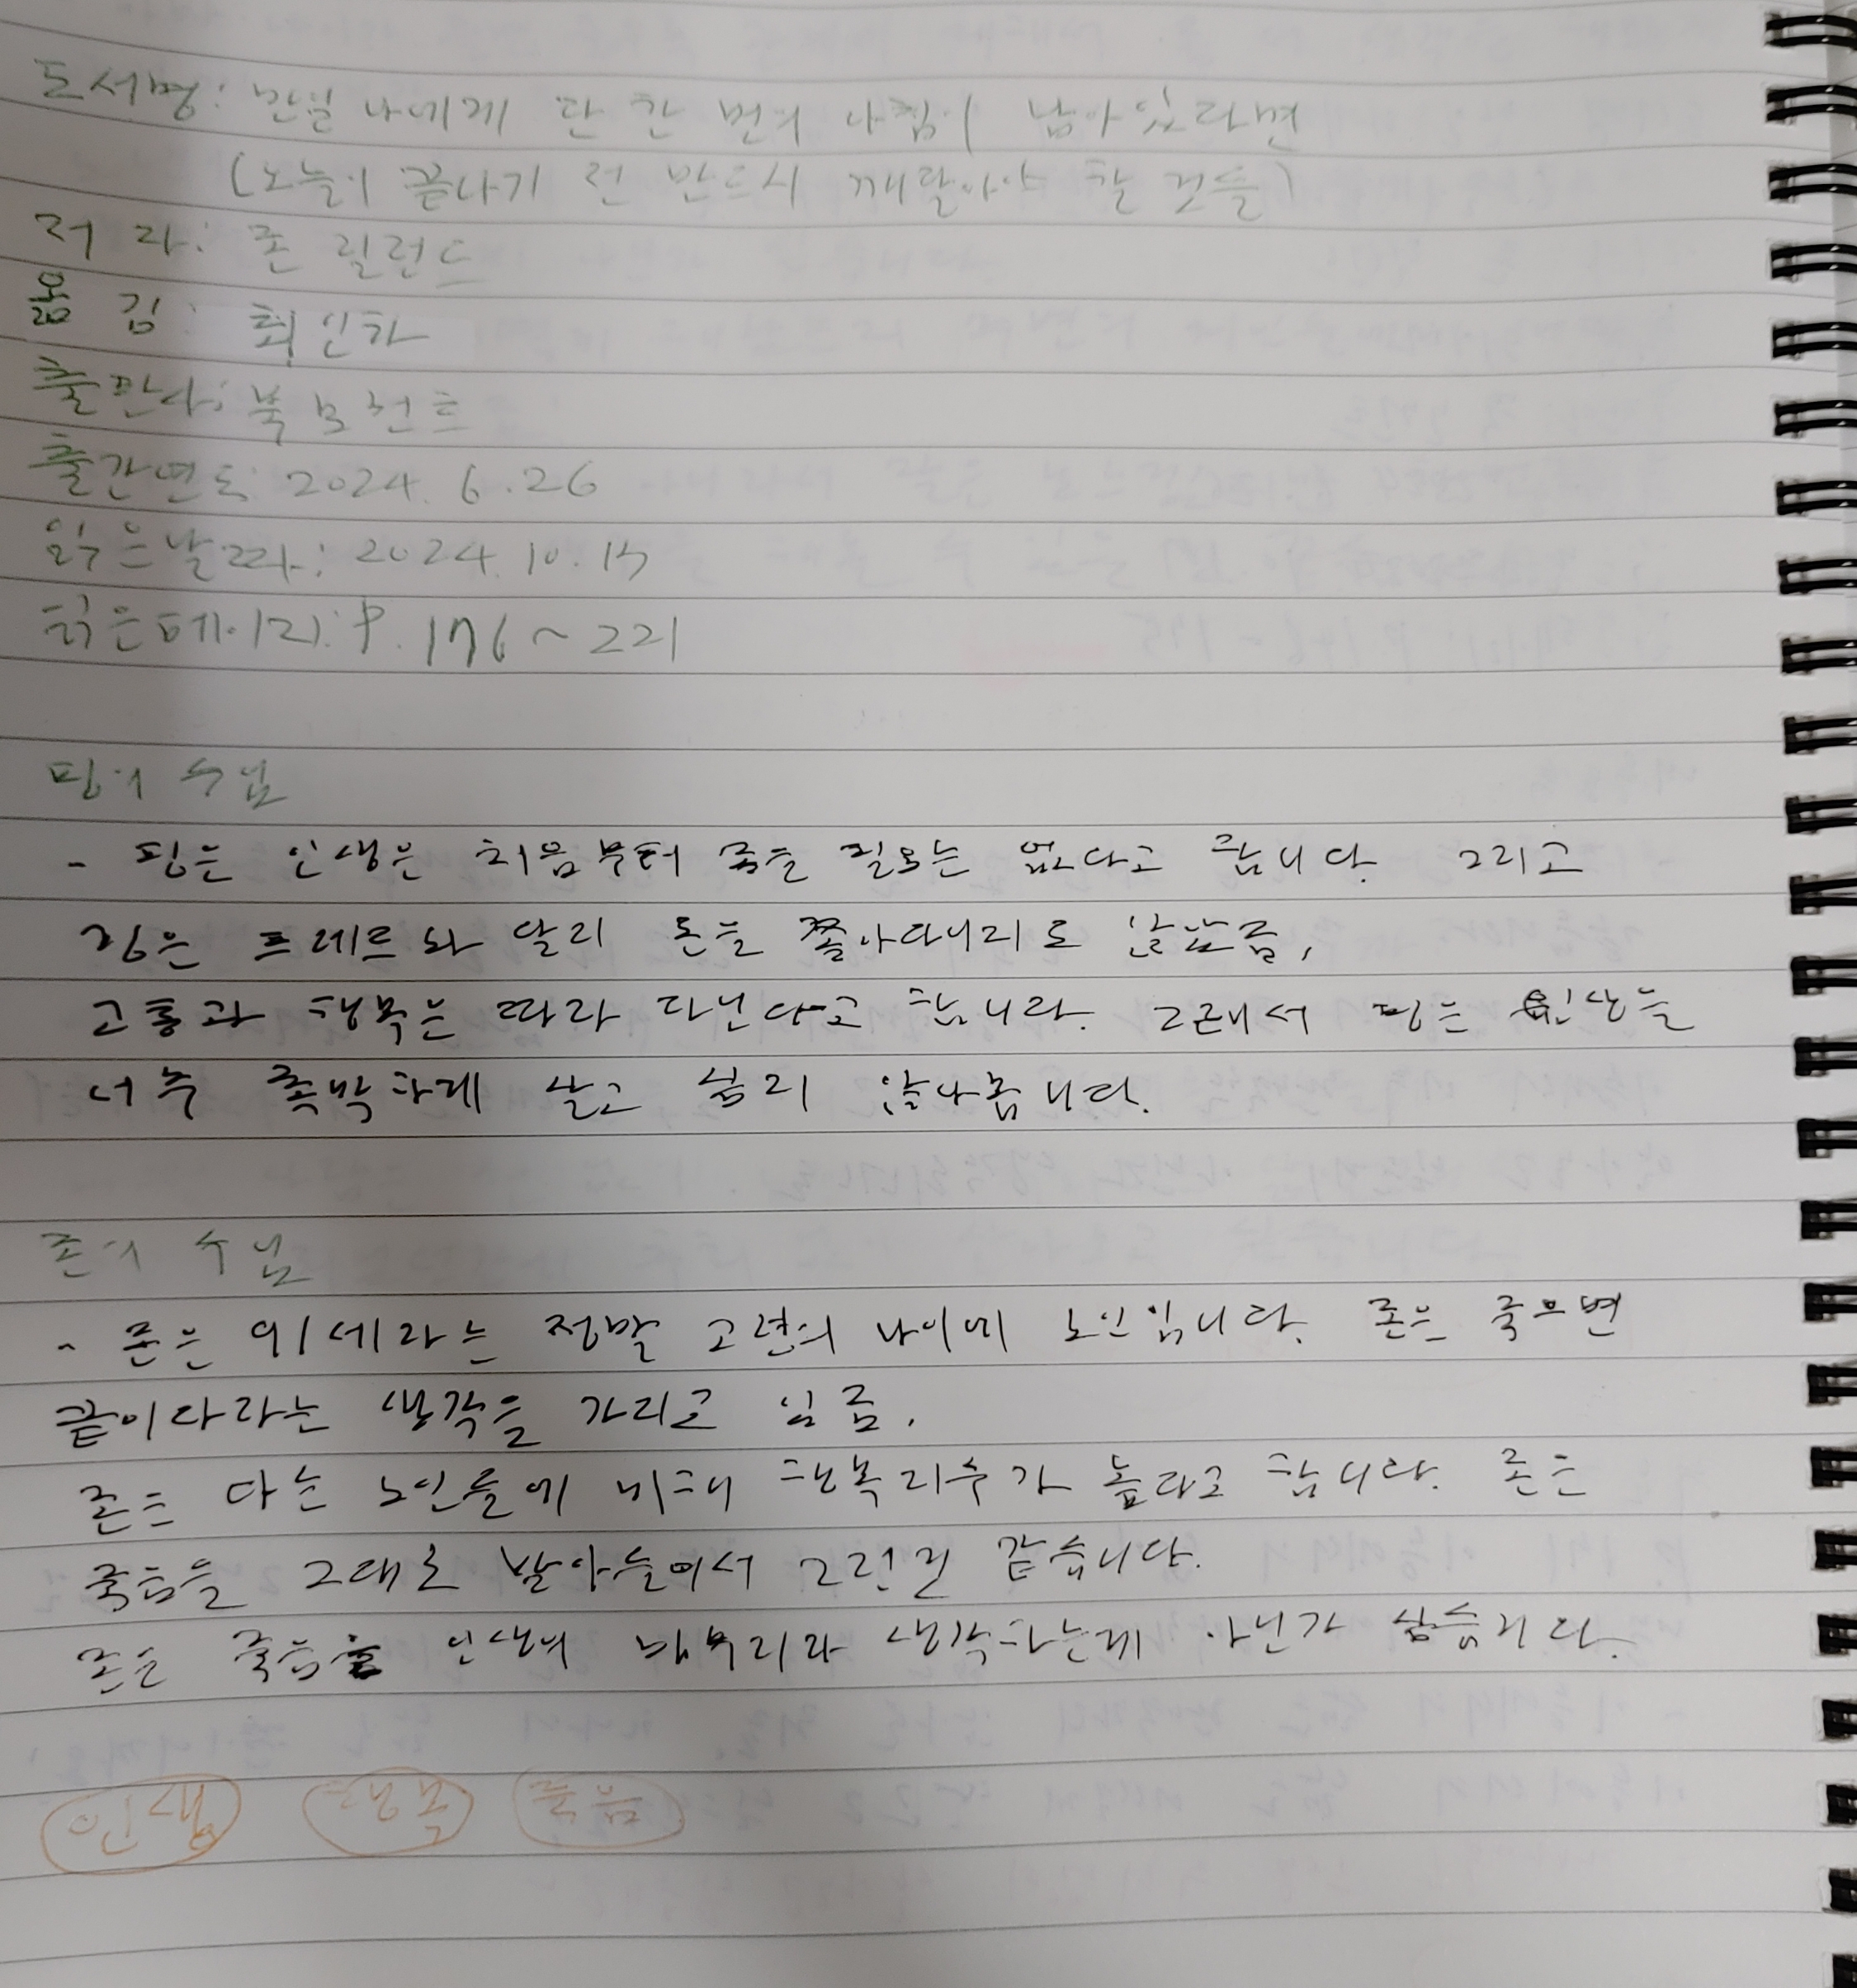 도서명: 만일 나에게 단 한 번의 아침이 남아있다면
(오늘이 끝나기 전 반드시 깨달아야 할 것들)
저 자: 존 릴런드
옮 김: 최인하
출판사: 북모먼트
출간연도: 2024. 6. 26
읽은날짜: 2024. 10. 15
읽은페이지: P. 176 ~ 221
핑의 수업
- 핑은 인생은 처음부터 죽을 필요는 없다고 합니다. 그리고
핑은 프레드와 달리 돈을 쫓아다니지도 않았음,
고통과 행복은 따라 다닌다고 합니다. 그래서 핑은 인생을
너무 족박하게 살고 싶지 않나봅니다.
존의 수업
- 존은 91세라는 정말 고련의 나이에 노인입니다. 존은 죽으면
끝이다라는 생각을 가지고 있음,
존은 다른 노인들에 비해 행복지수가 높다고 합니다. 존은
죽음을 그대로 받아들여서 그런것 같습니다.
존은 죽음을 인생의 마무리라 생각하는게 아닌가 싶습니다.
인생 행복 죽음